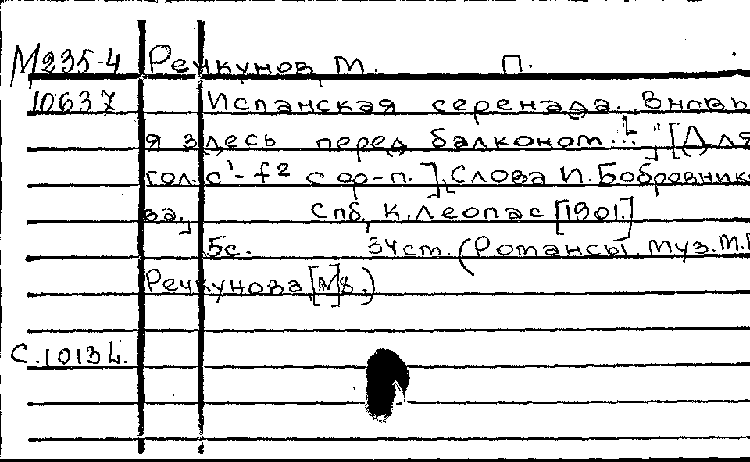 М235-4 Речкунов, М. П.
10637 Испанская серенада. Вновь
я здесь перед балконом..." [Для
гол. с¹-f² с фр-п.], [Слова И. Бобровнико
ва,] Спб, К. Леопас [1901.]
5с. 34см. (Романсы. муз. М.П.
Речкунова [№8.)
С.1013